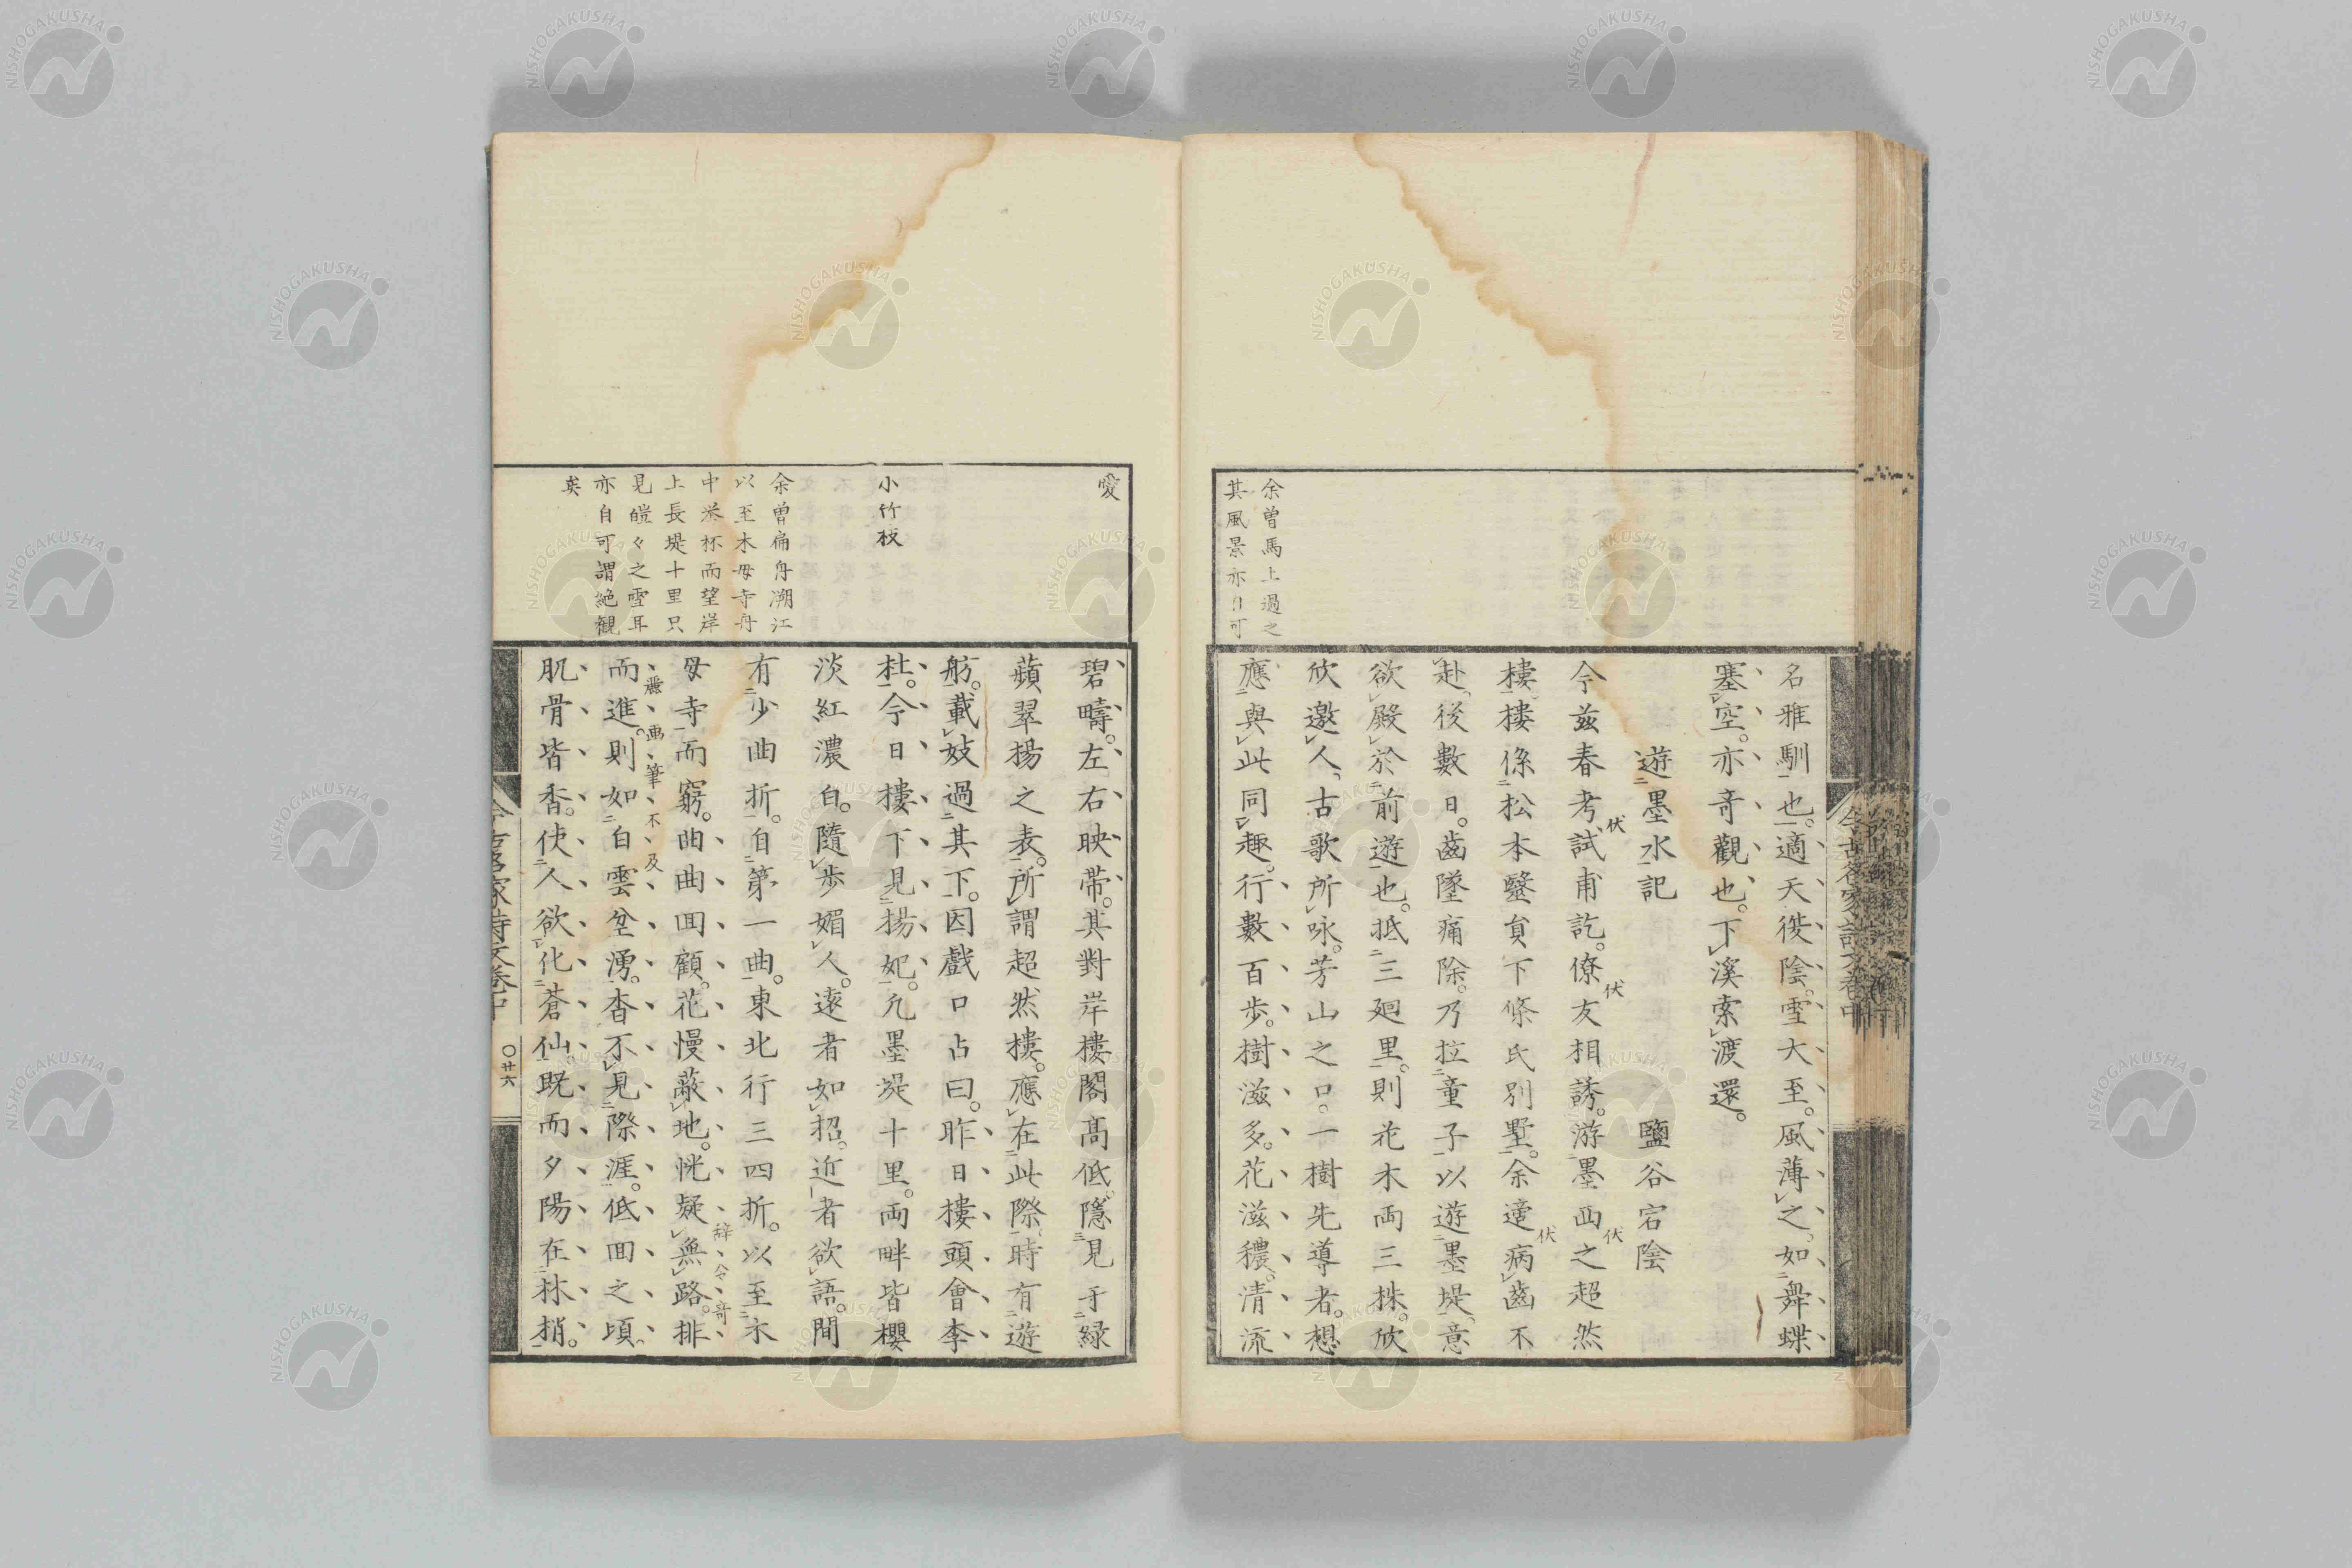 名雅馴也。適天後陰。雪大至。風薄之。如舞蝶
塞空。亦奇觀也。下溪索渡還。
遊墨水記　鹽谷宕陰
今茲春考試甫訖。僚友相誘。游墨西之超然
樓。樓係松本醫員下條氏別墅。余適病齒不
赴。後數日。齒墜痛除。乃拉童子以遊墨堤。意
欲殿於前遊也。抵三廻里。則花木両三株。欣
欣邀人。古歌所咏。芳山之口。一樹先導者。想
應與此同趣。行數百步。樹滋多。花滋穠。清流
余曽馬上過之
其風景亦自可
愛
碧疇。左右映帶。其對岸樓閣高低。隱見于綠
蘋翠楊之表。所謂超然樓。應在此際。時有遊
舫。載妓過其下。因戲口占曰。昨日樓頭會李
杜。今日樓下見楊妃。凡墨堤十里。両畔皆櫻
淡紅濃白。隨步媚人。遠者如招。近者欲語。間
有少曲折。自第一曲。東北行三四折。以至木
母寺而窮。曲曲回顧。花慢蔽地。恍疑無路。排
而進。則如白雲坌湧。杳不見際涯。低回之頃。
肌骨皆香。使人欲化蒼仙。既而夕陽在林梢。
小竹校
余曽扁舟溯江
以至木母寺舟
中举杯而望岸
上長堤十里只
見皚々之雪耳
亦自可謂絶観
矣
伏
伏
伏
伏
辞令奇
畫筆不及
今古名家詩文卷中
今古名家詩文卷中
〇廿六
NISHOGAKUSHA